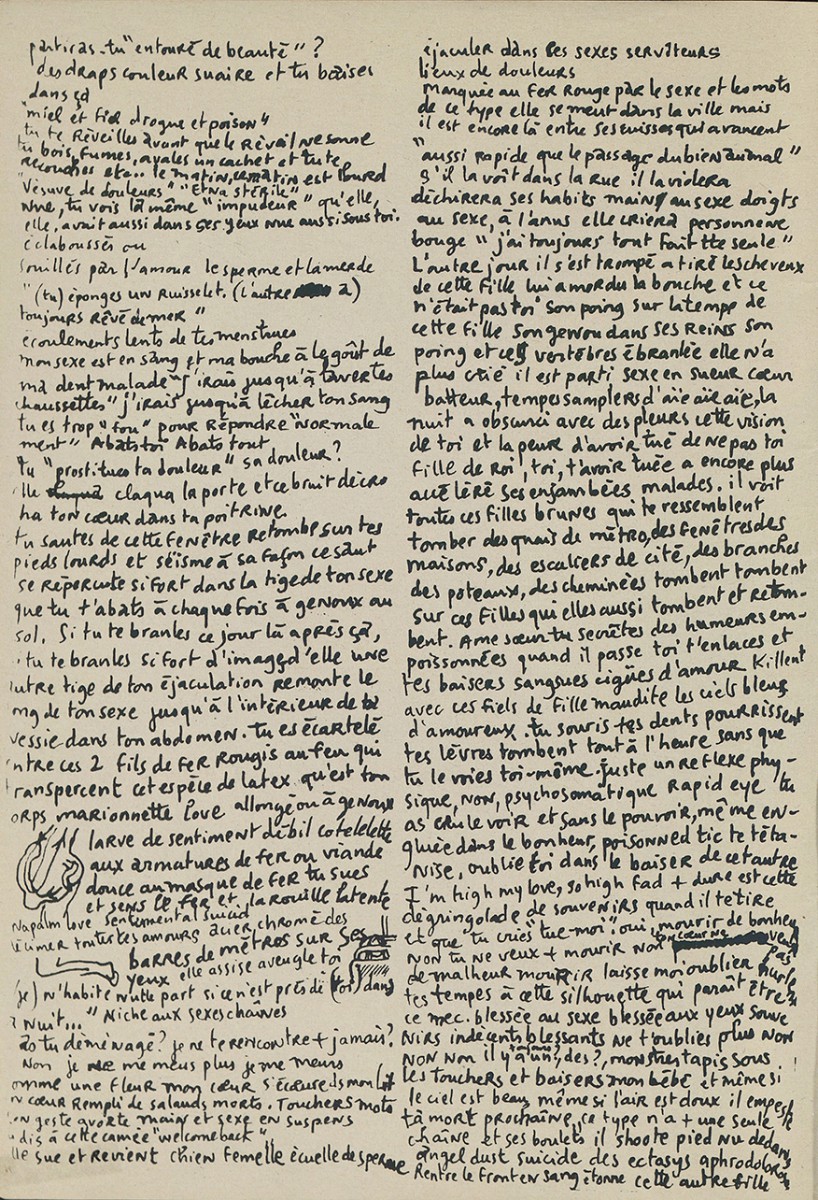 partiras-tu "entouré de beauté" ?
des draps couleur suaire et tu baises
dans ça
"miel et fiel drogue et poison"
tu te réveilles avant que le réveil ne sonne
tu bois, fumes, avales un cachet et tu te
recouches etc.. le matin, ce matin est lourd
"vésuve de douleurs" "Etna stérile"
nue, tu vois la même "impudeur" qu'elle,
elle, avait aussi dans ses yeux nue aussi sous toi.
éclaboussés ou
souillés par l'amour le sperme et la merde
"(tu) éponges un ruisselet. (l'autre a)
toujours rêvé de mer"
écoulements lents de tes menstrues
mon sexe est en sang et ma bouche à le goût de
ma dent malade "j'irais jusqu'à laver tes
chaussettes" j'irais jusqu'à lécher ton sang
tu es trop "fou" pour répondre "normale
ment" Abats toi Abats tout
tu "prostitues ta douleur" sa douleur?
elle claqua la porte et ce bruit décro
ha ton cœur dans ta poitrine.
tu sautes de cette fenêtre retombe sur tes
pieds lourds et séisme à sa façon ce saut
se répercute si fort dans la tige de ton sexe
que tu t'abats à chaque fois à genoux au
sol. Si tu te branles ce jour là après ça,
tu te branles si fort d'images d'elle une
autre tige de ton éjaculation remonte le
long de ton sexe jusqu'à l'intérieur de ta
vessie dans ton abdomen. tu es écartelé
entre ces 2 fils de fer rougis au feu qui
transpercent cet espèce de latex qu'est ton
corps, marionnette love allongé ou à genoux
larve de sentiment débil cotelette
aux armatures de fer ou viande
douce au masque de fer tu sues
et sens le fer et, la rouille latente
Napalm love sentimental suicid
écumer toutes tes amours acier chromé des
barres de métros sur ses
yeux elle assise aveugle toi
(je) n'habite nulle part si ce n'est près de (toi) dans
nuit..." Niche aux sexes chaînes
as tu déménagé? je ne te rencontre + jamais?
Non je me meus plus je me meurs
comme une fleur mon cœur s'écœure ds mon
cœur rempli de salauds morts. Touchers mots
ton geste avorte main et sexe en suspens
dis à cette camée "welcome back"
elle sue et revient chien femelle écuelle de sperme
éjaculer dans les sexes serviteurs
lieux de douleurs
marquée au fer rouge par le sexe et les mots
de ce type elle se meut dans la ville mais
il est encore là entre ses cuisses qui avancent
"aussi rapide que le passage du bien au mal"
s'il la voit dans la rue il la violera
déchirera ses habits mains au sexe doigts
au sexe, à l'anus elle criera personne ne
bouge "j'ai toujours tout fait tte seule"
L'autre jour il s'est trompé a tiré les cheveux
de cette fille lui a mordu la bouche et ce
n'était pas toi son poing sur la tempe de
cette fille son genou dans ses reins son
poing et ces vertèbres ébranlée elle n'a
plus crié il est parti sexe en sueur cœur
batteur, tempes samplers d'aïe aïe aïe, la
nuit a obscurci avec des pleurs cette vision
de toi et la peur d'avoir tué de ne pas toi
fille de roi, toi, t'avoir tuée a encore plus
accéléré ses enjambées malades. il voit
toutes ces filles brunes qui te ressemblent
tomber des quais de métro, des fenêtres des
maisons, des escaliers de cité, des branches
des poteaux, des cheminées tombent tombent
sur ces filles qui elles aussi tombent et retom-
bent. Ame sœur tu secrètes des humeurs em-
poissonnées quand il passe toi t'enlaces et
tes baisers sangsues cigües d'amour killent
avec ces fiels de fille maudite les ciels bleus
d'amoureux. tu souris tes dents pourrissent
tes lèvres tombent tout à l'heure sans que
tu le voies toi-même. juste un reflexe phy-
sique, non, psychosomatique rapid eye tu
as cru le voir et sans le pouvoir, même en-
gluée dans le bonheur, poisonned tic te téta-
nise, oublie toi dans le baiser de cet autre
I'm high my love, so high fad + dure est cette
dégringolade de souvenirs quand il te tire
et que tu cries "tue-moi" oui mourir de bonheur
non tu ne veux + mourir non cœur ne veut pas
de malheur mourir laisse moi oublier hurle
tes tempes à cette silhouette qui paraît être
ce mec. blessée au sexe blessée aux yeux souve
nirs indécents blessants ne t'oublies plus non
non non il y'a un?, des?, monstres tapis sous
les touchers et baisers mon bébé et même si
le ciel est beau, même si l'air est doux il empeste
ta mort prochaine, ce type n'a + une seule
chaîne et ses boulets il shoote pied nu dedans
angel dust suicide des ectasys
Rentre le front en sang étonne cette autre fille